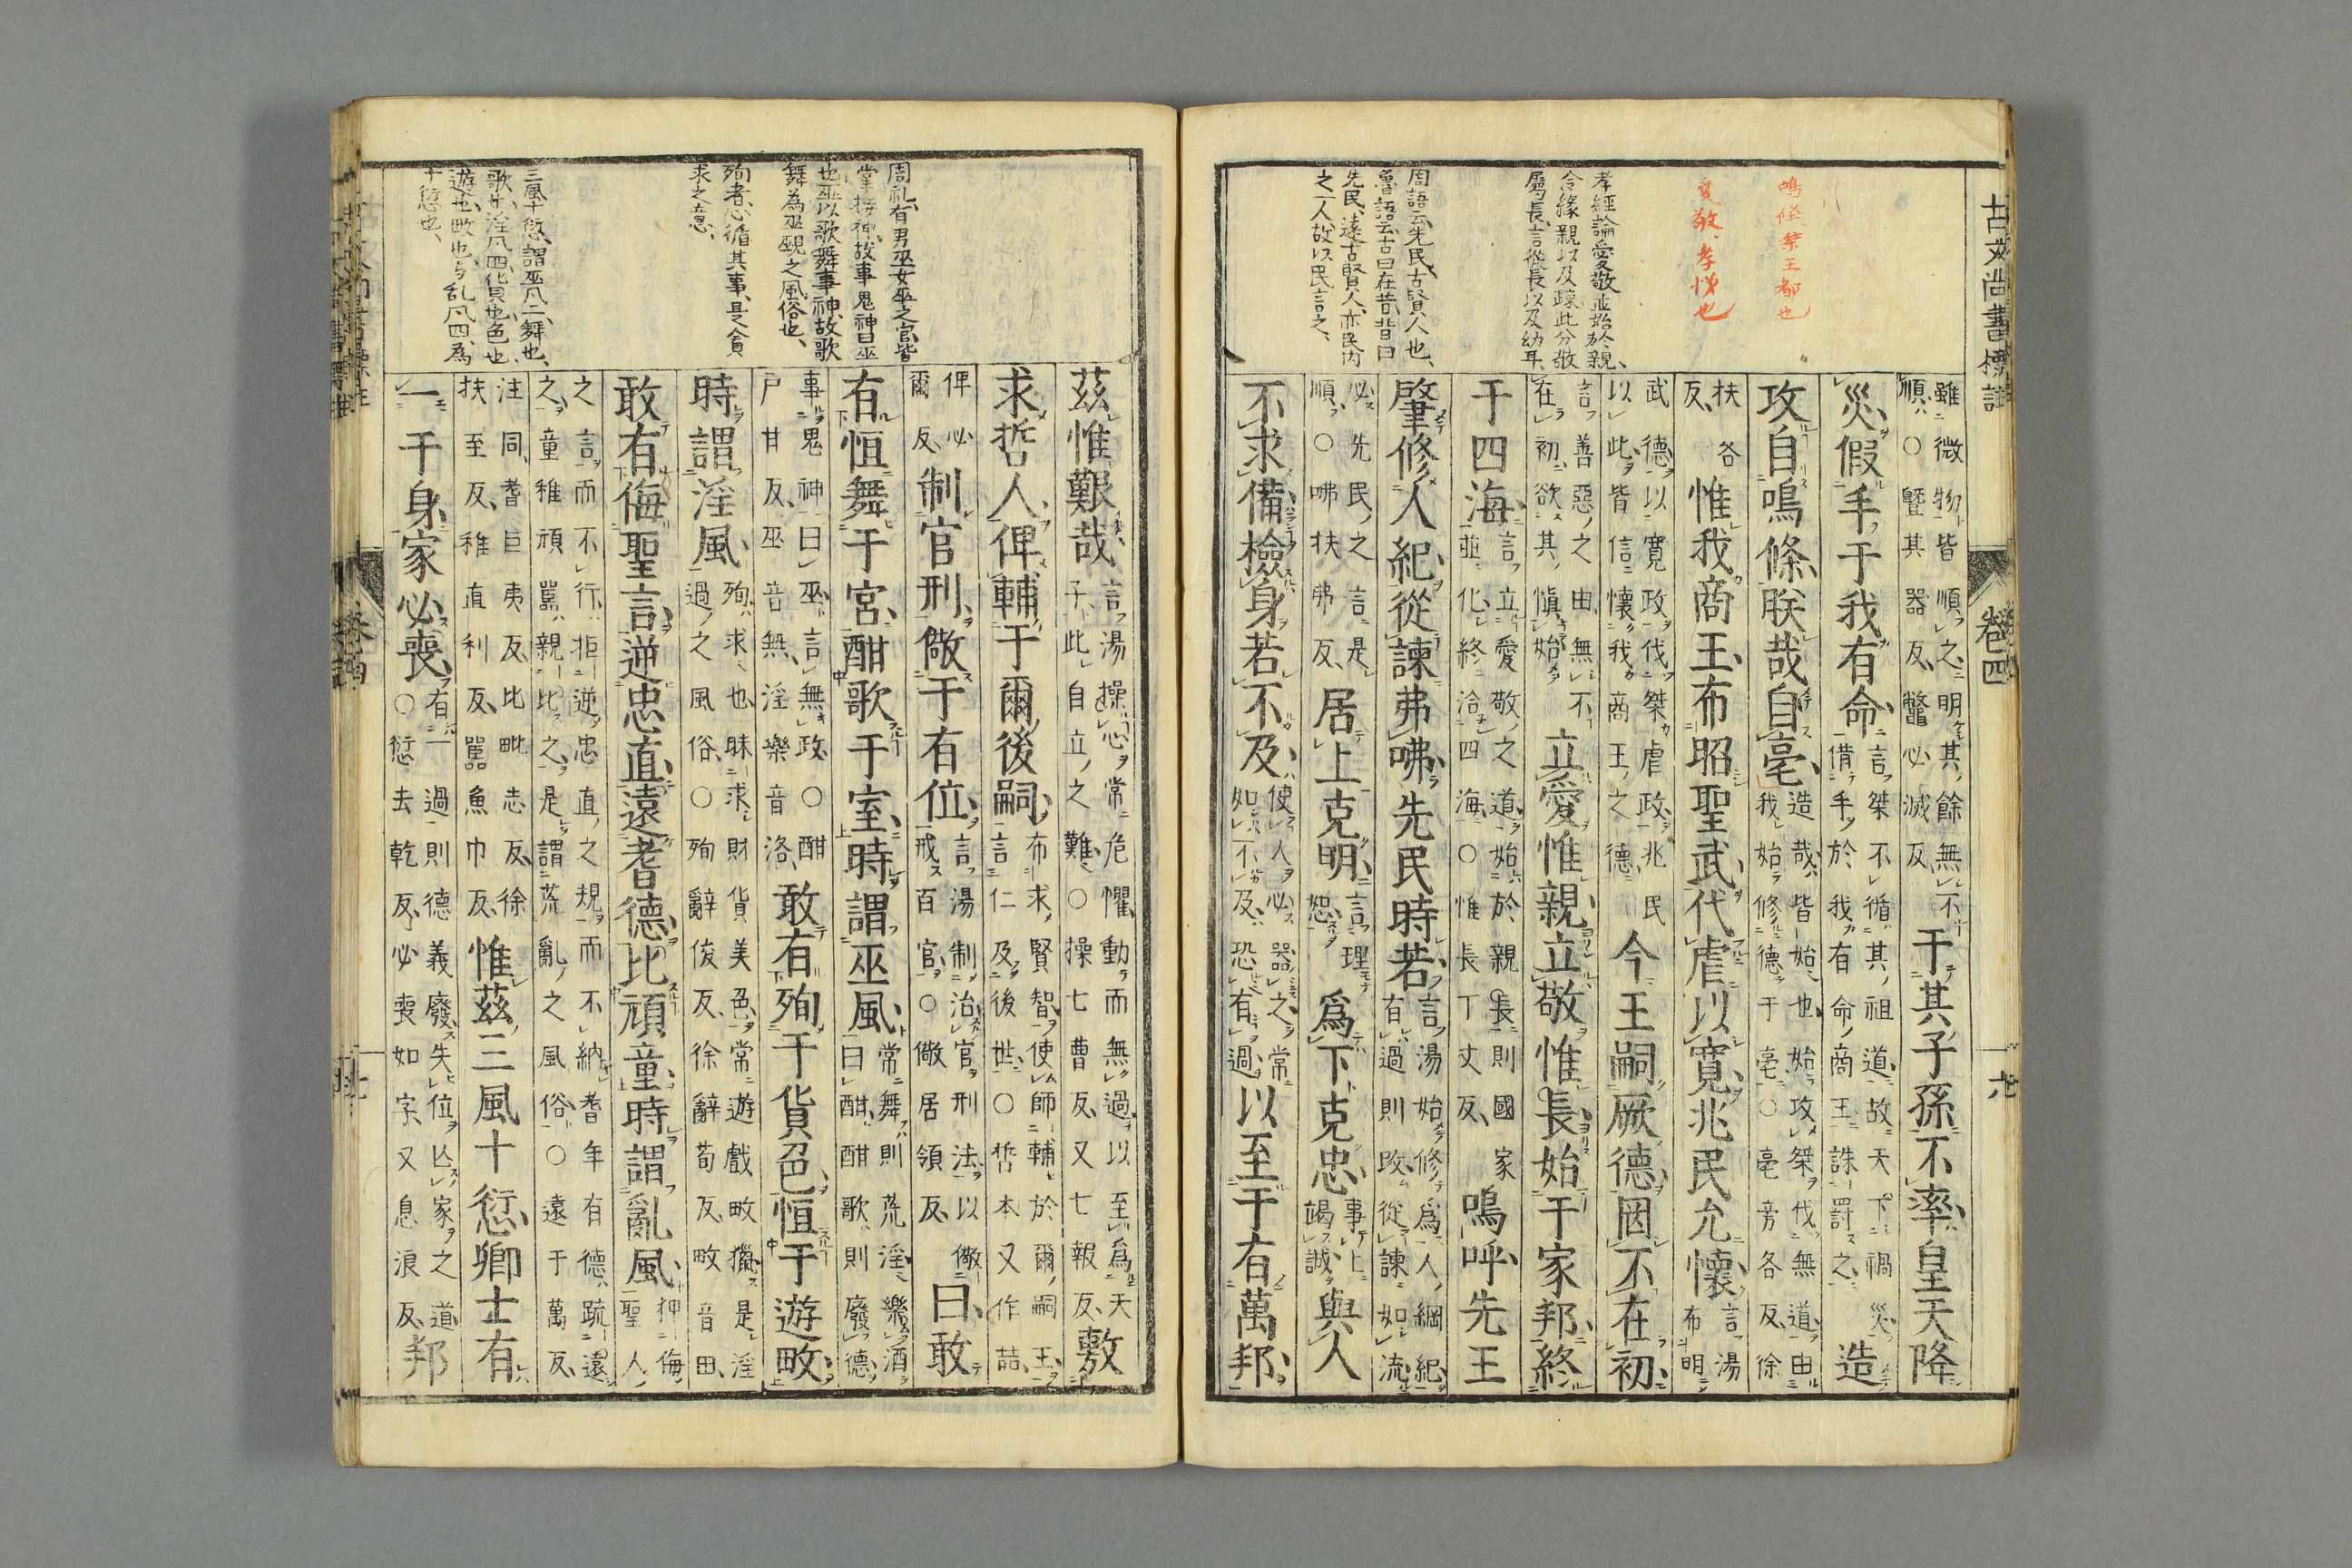 古文尚書標註
卷四
鳴條桀王都也
愛敬、孝悌也
孝經論愛敬並始於親、
令緣親以及疎此分敬
屬長、言從長以及幼耳、
周語云、先民古賢人也、
魯語云、古曰在昔、昔曰
先民、遠古賢人、亦民內
之一人、故以民言之、
雖微物皆順之明其餘無不
順、○曁其器反、鼈必滅反、
于其子孫不率皇天降
災、假手于我有命、
言桀不循其祖道、故天下禍災、
借手於我有命商王誅罰之、
造
攻自鳴條、朕哉自亳、
造哉、皆始也、始攻桀伐無道由
我始修德于亳、○亳旁各反、徐
扶各
反、
惟我商王、布昭聖武、代虐以寬、兆民允懷、
言湯
布明
武德以寬政伐桀虐政、兆民
以此皆信懷我商王之德、
今王嗣厥德、罔不在初、
言善惡之由、無不
在初、欲其愼始、
立愛惟親、立敬惟長、始于家邦、終
于四海、
言立愛敬之道、始於親長則國家
並化、終洽四海、○惟長丁丈反、
嗚呼、先王
肇修人紀、從諫弗咈、先民時若、
言湯始修爲人綱紀、
有過則改、從諫如流、
必先民之言是
順、○咈扶弗反、
居上克明、
言理
恕、
爲下克忠、
事上
竭誠、
與人
不求備、檢身若不及、
使人必器之、常
如不及、恐有過、
以至于有萬邦、
周礼、有男巫女巫之官、皆
掌接神、故事鬼神曰巫
也、巫以歌舞事神、故歌
舞為巫覡之風俗也、
殉者、心循其事、是貪
求之意、
三風十愆、謂巫凨二、舞也、
歌也、淫凨四、貨也、色也、
遊也、畋也、与乱凨四、為
十愆也、
茲惟艱哉、
言湯操心常危懼、動而無過、以至爲天
子、此自立之難、○操七曹反、又七報反、
敷
求哲人、俾輔于爾後嗣、
布求賢智、使師輔於爾嗣王、
言仁及後世、○哲本又作喆、
俾必
爾反、
制官刑、儆于有位、
言湯制治官刑法、以儆
戒百官、○儆居領反、
曰、敢
有恒舞于宮、酣歌于室、時謂巫風、
常舞則荒淫、樂酒
曰酣、酣歌則廢德、
事鬼神曰巫、言無政、○酣
戶甘反、巫音無、淫樂音洛、
敢有殉于貨色、恒于遊畋、
時謂淫風、
殉、求也、昧求財貨美色、常遊戲畋獵、是淫
過之風俗、○殉辭俊反、徐辭荀反、畋音田、
敢有侮聖言、逆忠直、遠耆德、比頑童、時謂亂風、
狎侮
聖人
之言而不行、拒逆忠直之規而不納、耆年有德、疏遠
之、童稚頑嚚、親比之、是謂荒亂之風俗、○遠于萬反、
注同、耆巨夷反、比毗志反、徐
扶至反、稚直利反、嚚魚巾反、
惟茲三風十愆、卿士有
一于身、家必喪、
有一過則德義廢、失位亾家之道、
○愆去乾反、必喪如字、又息浪反、
邦